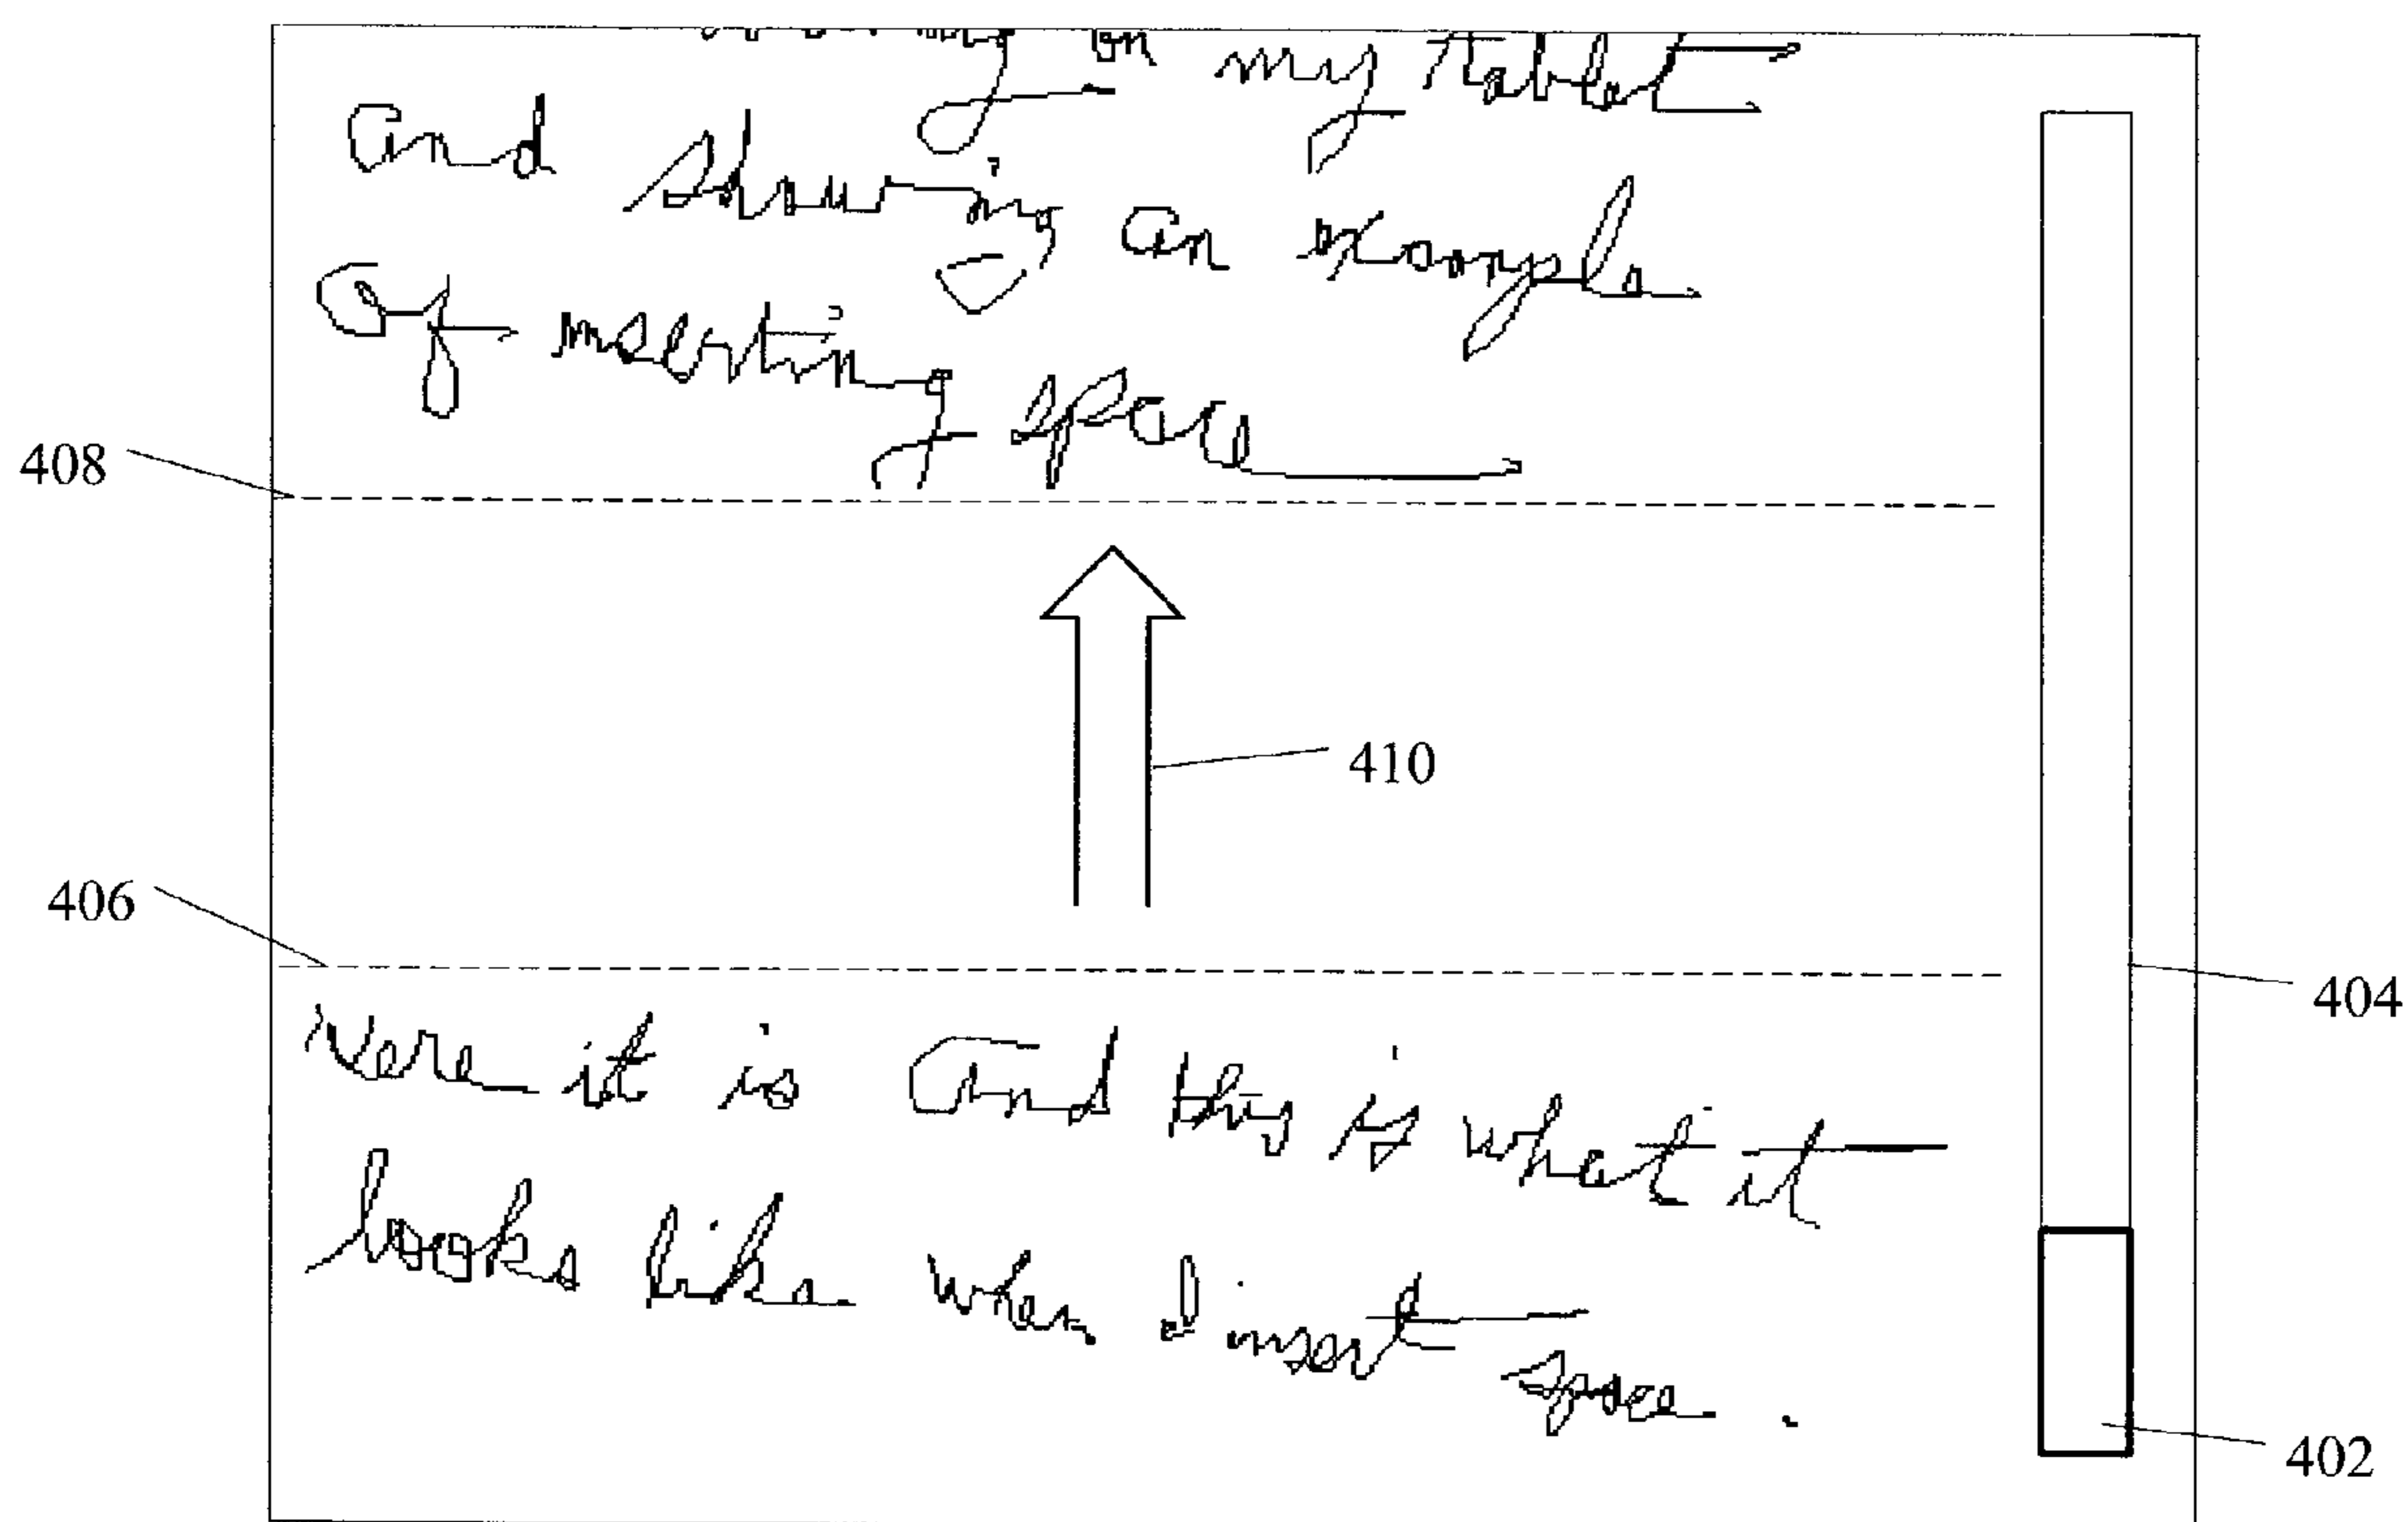 on my tablet
and showing an example
of inserting space
408
410
406
Here it is and this is what it
looks like when I insert space.
404
402